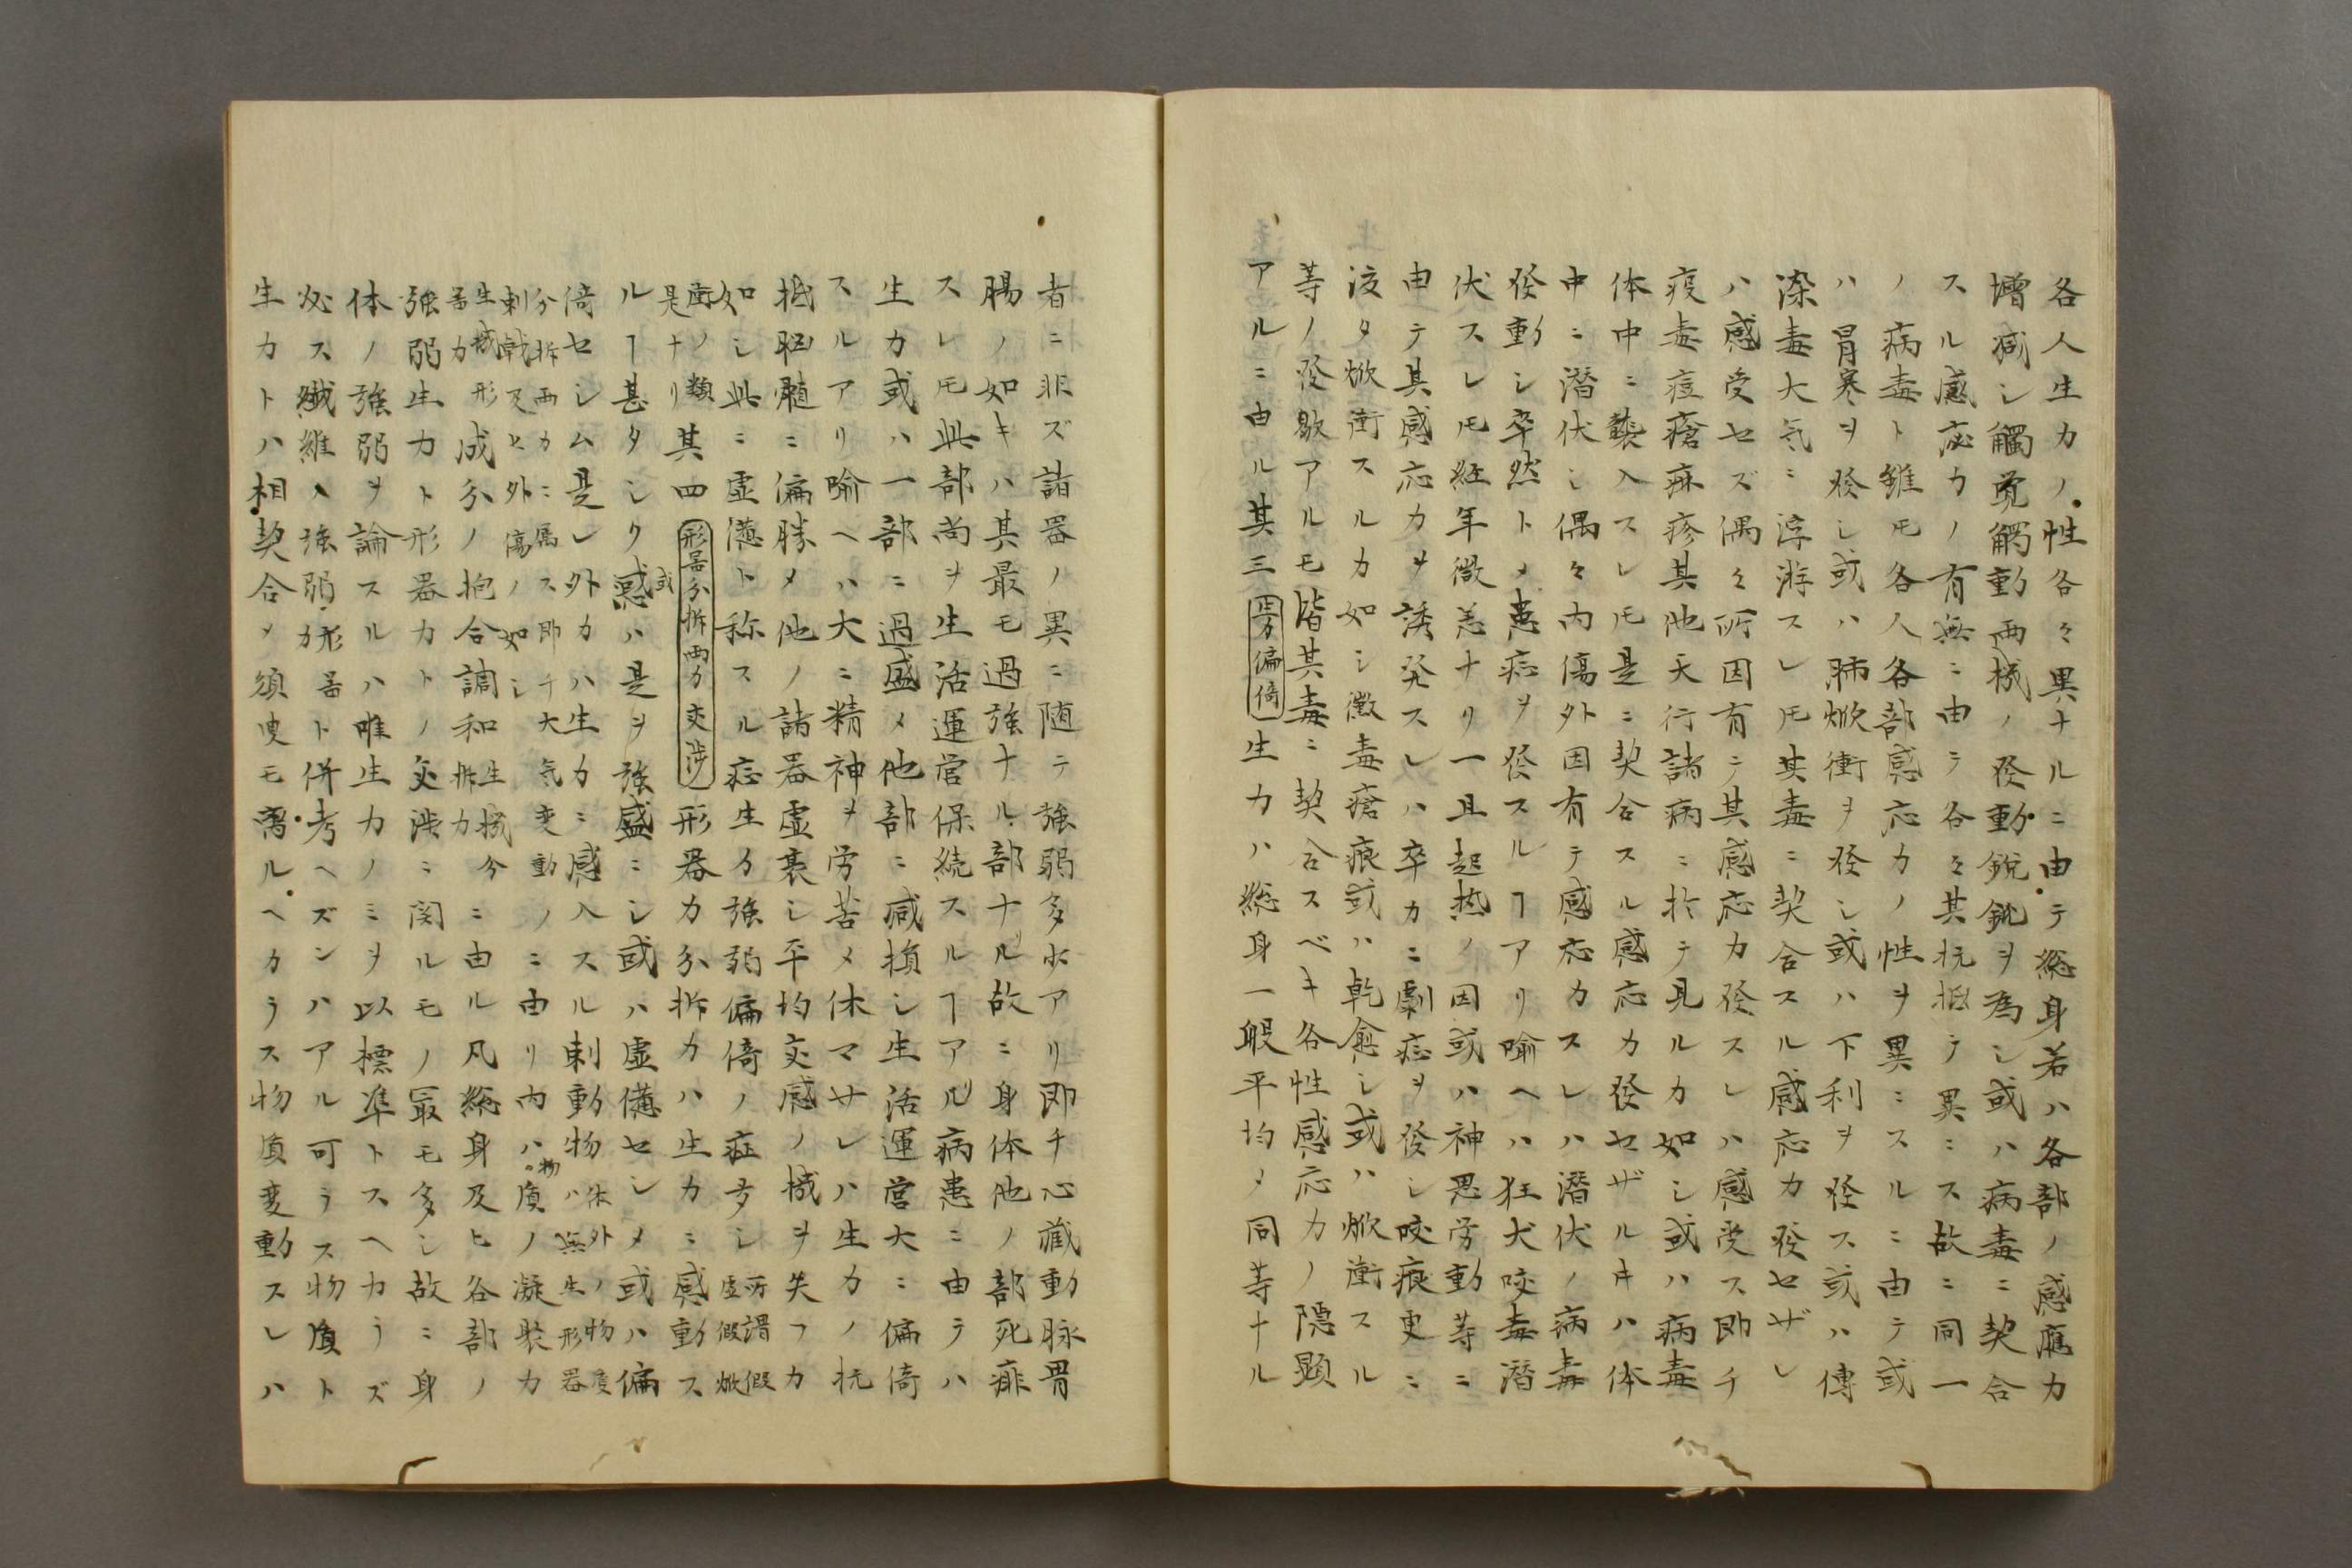 各人生力ノ性各々異ナルニ由テ総身若ハ各部ノ感應力
増减シ觸覚觸動両機ノ發動銳鈍ヲ為シ或ハ病毒ニ契合
スル感応力ノ有無ニ由テ各々其抗抵ヲ異ニス故ニ同一
ノ病毒ト雖ㇳモ各人各部感応力ノ性ヲ異ニスルニ由テ或
ハ胃寒ヲ發シ或ハ肺焮衝ヲ發シ或ハ下利ヲ發ス或ハ傳
染毒大気ニ浮游スレㇳモ其毒ニ契合スル感応力發セザレ
ハ感受セズ偶々所因有テ其感応力發スレハ感受ス即チ
疫毒痘瘡痳疹其他天行諸病ニ於テ見ルカ如シ或ハ病毒
体中ニ襲入スレㇳモ是ニ契合スル感応力發セザルキハ体
中ニ潜伏シ偶々内傷外因有テ感応力スレハ潜伏ノ病毒
發動シ卒然トメ患症ヲ發スルヿアリ喩ヘハ狂犬咬毒潜
伏スレㇳモ経年微恙ナリ一旦起热ノ因或ハ神思労動等ニ
由テ其感応力ヲ誘発スレハ卒カニ劇症ヲ發シ咬痕更ニ
液タ焮衝スルカ如シ黴毒瘡痕或ハ乾愈シ或ハ焮衝スル
等ノ發歇アルモ皆其毒ニ契合スベキ各性感応力ノ隠顕
アルニ由ル其三 偏倚 生力ハ総身一般平均メ同等ナル
者ニ非ズ諸器ノ異ニ随テ強弱多少アリ即チ心蔵動脉胃
腸ノ如キハ其最モ過強ナル部ナル故ニ身体他ノ部死痱
スレㇳモ此部尚ヲ生活運営保続スルヿアル病患ニ由テハ
生力或ハ一部ニ過盛メ他部ニ减損シ生活運営大ニ偏倚
スルアリ喩ヘハ大ニ精神ヲ労苦メ休マサレハ生力ノ抗
抵脳髄ニ偏勝メ他ノ諸器虚衰シ平均交感ノ機ヲ失フカ
如シ此ニ虚憊ト称スル症生力強弱偏倚ノ症多シ 所謂假虚假焮
衝ノ類是ナリ 其四 形器分拆両力交渉 形器力分拆力ハ生力ニ感動ス
ルヿ甚タシク 或 感ハ是ヲ強盛ニシ或ハ虚憊セシメ或ハ偏
倚セシム是レ外力ハ生力ニ感入スル刺動物 体外ノ物質ハ無生形器
分拆両力ニ属ス即チ大気変動ノ刺戟及ヒ外傷ノ如シ ニ由リ内ハ物質ノ凝聚力
生機形器力 成分ノ抱合調和 生機分拆力 ニ由ル凡総身及ヒ各部ノ
強弱生力ト形器力トノ交渉ニ関ルモノ冣モ多シ故ニ身
体ノ強弱ヲ論スルハ唯生力ノミヲ以標準トスヘカラズ
必ス繊維ノ強弱力形器ト併考ヘズンハアル可ラス物質ト
生力トハ相契合メ須臾モ离ルヘカラス物質変動スレハ